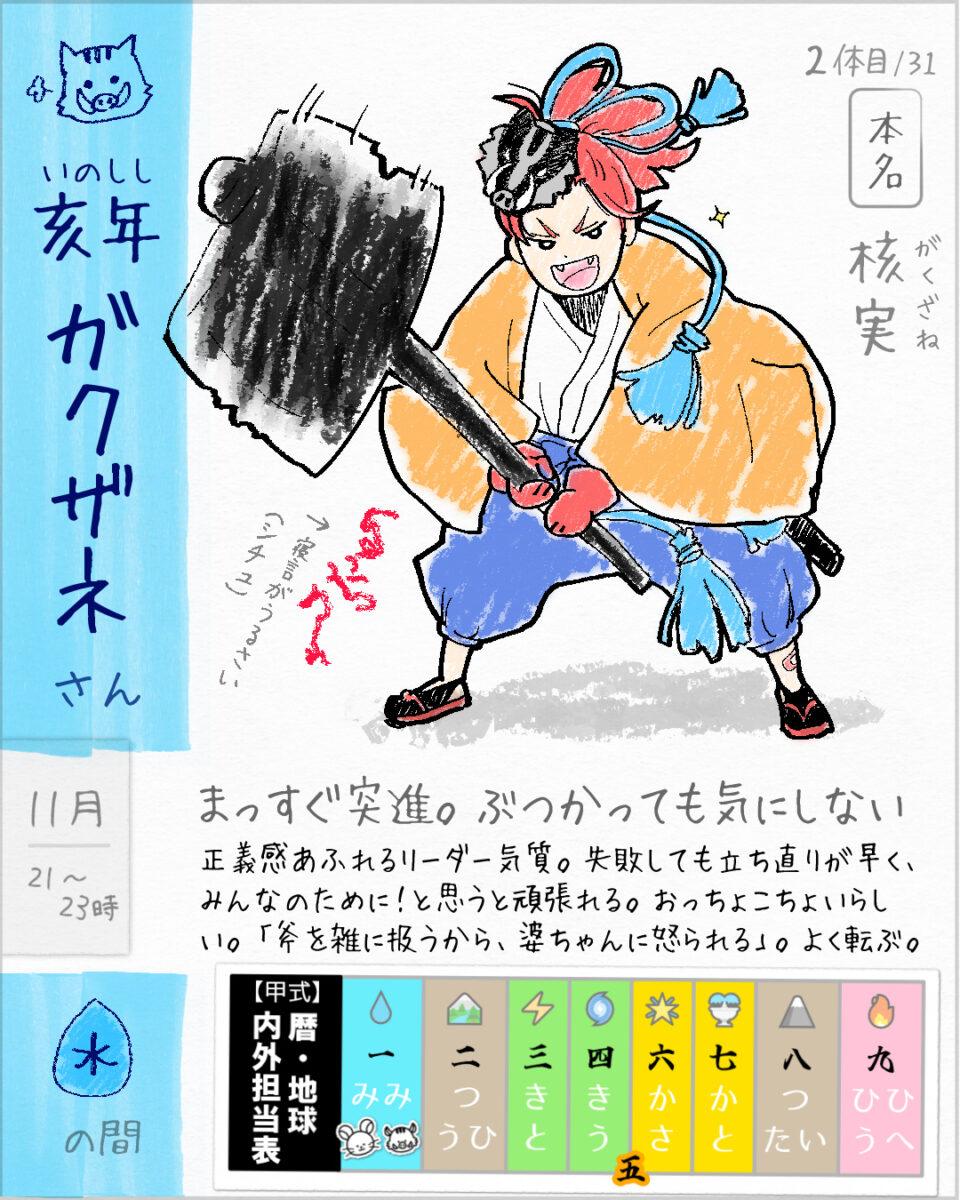 いのしし
亥年 ガクザネ さん
11月
21〜
23時
水
の間
2体目/31
本名
核実
がくざね
→寝言がうるさい
(シチュ)
まっすぐ突進。ぶつかっても気にしない
正義感あふれるリーダー気質。失敗しても立ち直りが早く、
みんなのために！と思うと頑張れる。おっちょこちょいらし
い。「斧を雑に扱うから、婆ちゃんに怒られる」。よく転ぶ。
【甲式】
暦・地球
内外担当表
一 二 三 四 六 七 八 九
みみ つ き き か か つ ひひ
うひ と う さ と たい うへ
五